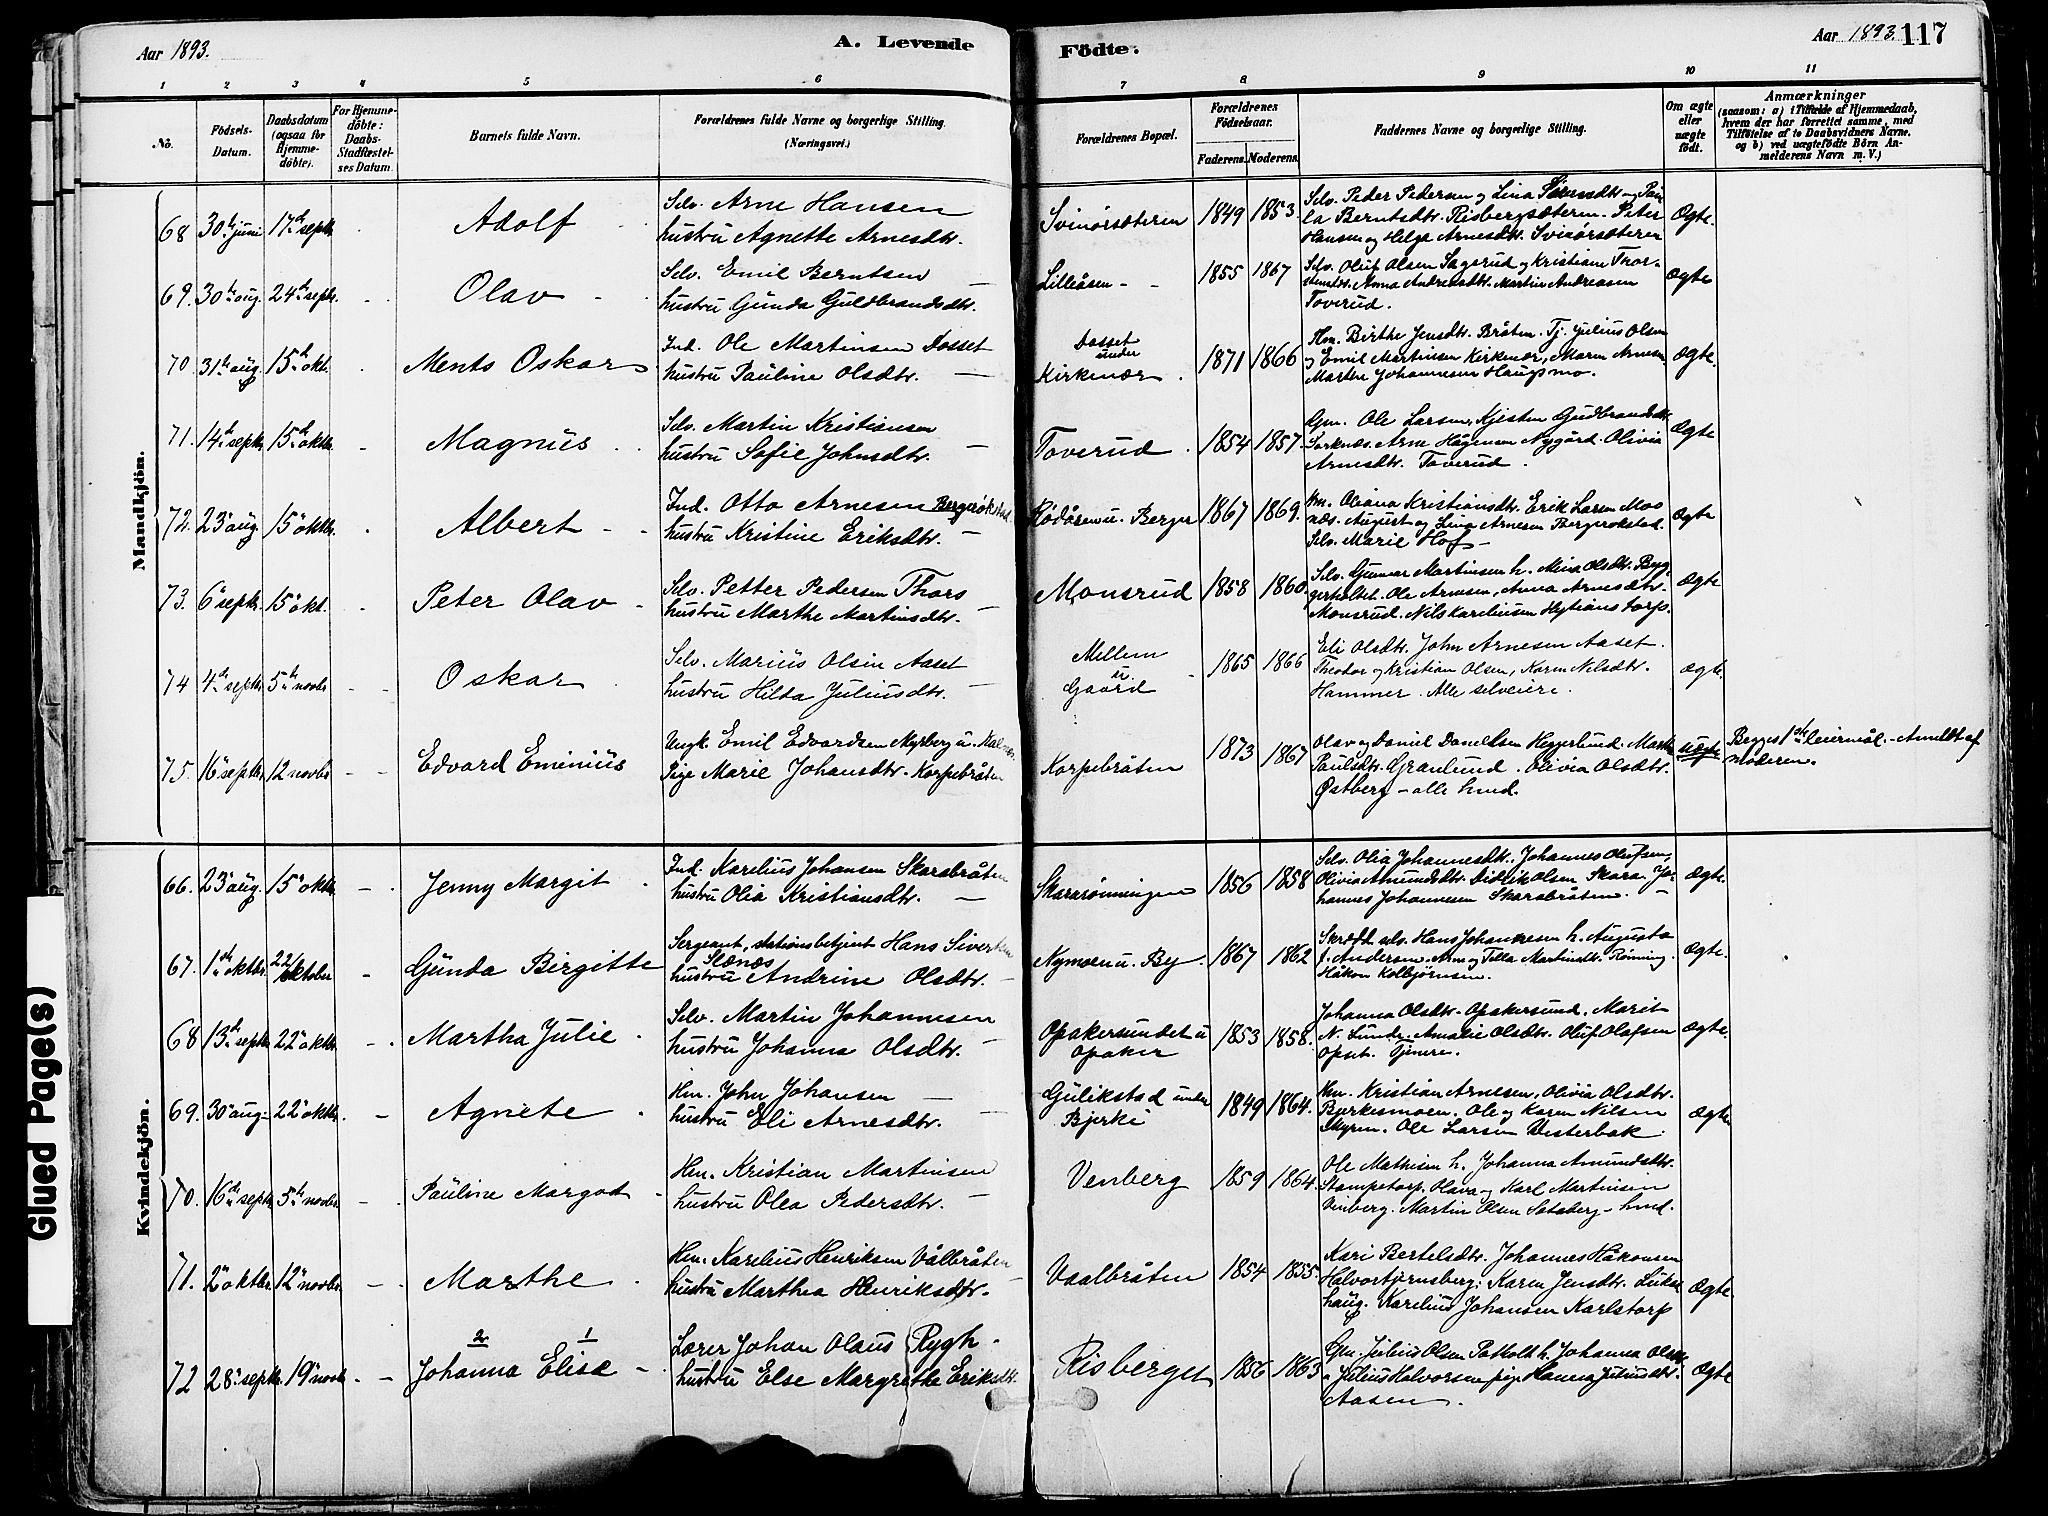 Aar 1893.
A. Levende
Födte.
Aar 1893. 117
1 2 3 4 5 6 7 8 9 10 11
No.
Födsels-Datum.
Daabsdatum (ogsaa for Hjemme-döbte).
For Hjemme-döbte: Daabs-Stadfæstel-ses Datum.
Barnets fulde Navn.
Forældrenes fulde Navne og borgerlige Stilling. (Næringsvei.)
Forældrenes Bopæl.
Forældrenes Födselsaar.
Faderens. Moderens.
Faddernes Navne og borgerlige Stilling.
Om ægte eller uægte födt.
Anmærkninger
(saasom: a) i Tilfælde af Hjemmedaab,
hvem der har forrettet samme, med
Tilföielse af to Daabsvidners Navne.
og b) ved uægtefödte Börn An-
melderens Navn m. V.)
Mandkjön.
68 30te juni 17de septr. Adolf
Selv. Arne Hansen
hustru Agnette Arnesdtr.
Svinörsæteren 1849 1853.
Selv. Peder Pedersen og Lina
la Berntsdtr. Risbergsæteren. Peter
Hansen og Helga Arnesdtr. Svinörsæteren
Ægte.
69. 30te aug. 24de septr. Olav
Selv. Emil Berntsen
hustru Gunda Guldbrandsdtr.
Lilleåsen 1855 1867
Selv. Oluf Olsen Sagerud og Kristiane Thor-
Anna Andreasdtr. Martin Andreasen
Toverud.
Ægte
70 31te aug. 15de okt. Ments Oskar
Ind. Ole Martinsen Dosset
hustru Pauline Olsdtr.
Dosset under
Kirkenær. 1871 1866
Hm. Birthe Jensdtr. Bråten. Tj. Julius Olsen
og Emil Martinsen Kirkenær, Maren Arnesen
Marthe Johannesen Haugsmo.
Ægte.
71. 14de septr. 15de oktbr. Magnus
Selv. Martin Kristiansen
hustru Sofie Johnsdtr.
Toverud. 1854 1857.
Gm. Ole Larsen, Kjersten Gudbrandsdtr.
Sorknæs. Arne Hågensen Nygård. Olivia
Arnesdtr. Toverud.
Ægte
72. 23de aug. 15de oktbr. Albert
Ind. Otto Arnesen Bergerökstad
hustru Kristine Eriksdtr.
Rödåsen u. Berger 1867 1869.
Hm. Oliana Kristiansdtr. Erik Larsen Mos
næs. August og Lina Arnesen Bergerökstad.
Selv. Marie Hof
Ægte
73. 6te septr. 15de okt. Peter Olav
Selv. Petter Pedersen Thors
hustru Marthe Martinsdtr.
Monsrud 1858 1860.
Selv. Gunnar Martinsen h. Mina Olsdtr. Byg
gerholtet. Ole Arnesen, Anna Arnesdtr.
Monsrud. Nils Kareliusen Kristianstorp.
Ægte
74 4de septr. 5te novbr. Oskar
Selv. Marius Olsen Aaset
hustru Hilda Juliusdtr.
Mellem
u.
Gaard 1865 1866
Eli Olsdtr. John Arnesen Aaset.
Theodor og Kristian Olsen, Karen Nilsdtr.
Hammer. Alle selveiere.
Ægte.
75. 16de septr. 12 novbr. Edvard Eminius
Ungk. Emil Edvardsen Myrberg u.
Pige Marie Johansdtr. Korpebråten
Korpebråten 1873 1867
Olav og Daniel Danielsen Heggerlund. Marthe
Paulsdtr. Granlund. Olivia Olsdtr.
Østberg - alle hmd.
Uægte
Begges 1ste leiermål. Anmeldt af
moderen.
Kvindekjön.
66. 23de aug. 15de oktbr. Jenny Margit
Ind. Karelius Johansen Skarabråten
hustru Olia Kristiansdtr.
Skararönningen 1856 1858
Selv. Olia Johannesdtr. Johannes Olufsen,
Olivia Amundsdtr. Didrik Olsen Skara. Jo-
hannes Johannesen Skarabråten.
Ægte.
67. 1ste oktbr. 22/ oktober Gunda Birgitte
Sergeant, stationsbetjent Hans Sivertsen
Slænæs
hustru Andrine Olsdtr.
Nymoen u. By 1867 1862
Skrædd. selv. Hans Johannesen h. Augusta
f. Andersen. Arne og Tilla Martinsdtr. Rönning.
Håkon Kolbjörnsen.
Ægte.
68 13de septr. 22de oktbr. Martha Julie
Selv. Martin Johannesen
hustru Johanna Olsdtr.
Opakersundet u
Opaker 1853 1858.
Johanna Olsdtr. Opakersund. Marit
N. Lunde. Amalie Olsdtr. Oluf Olafsen
Opset.
Ægte.
69. 30te aug. 22de oktbr. Agnete
Hm. John Johansen
hustru Eli Arnesdtr.
Gulikstad under
Bjerke 1849 1864.
Hm. Kristian Arnesen, Olivia Olsdtr.
Bjerkesmoen. Ole og Karen Nilsen
Myren. Ole Larsen Vesterbak.
Ægte
70. 16de septr. 5te novbr. Pauline Margod
Hm. Kristian Martinsen
hustru Olea Pedersdtr.
Venberg 1859 1864.
Ole Mathisen h. Johanna Amundsdtr.
Stampetorp. Olava og Karl Martinsen
Venberg. Martin Olsen Sætaberg - hmd.
Ægte.
71. 2de oktbr. 12te novbr. Marthe
Hm. Karelius Henriksen Vålbråten
hustru Marthea Henriksdtr.
Vaalbråten 1854 1855.
Kari Bertelsdtr. Johannes Håkonsen
Halvortjernsberg. Karen Jensdtr.
haug. Karelius Johansen Karlstorp
Ægte.
72 28de septr. 19de novbr. 2 1
Johanna Elise
Lærer Johan Olaus Rygh
hustru Else Margrethe Eriksdtr.
Risberget 1856 1863
Gm. Julius Olsen Potholt h. Johanna Olsdtr.
Julius Halvorsen pige Hanna Juliusdtr.
Aasen.
Ægte
Glued Page(s)